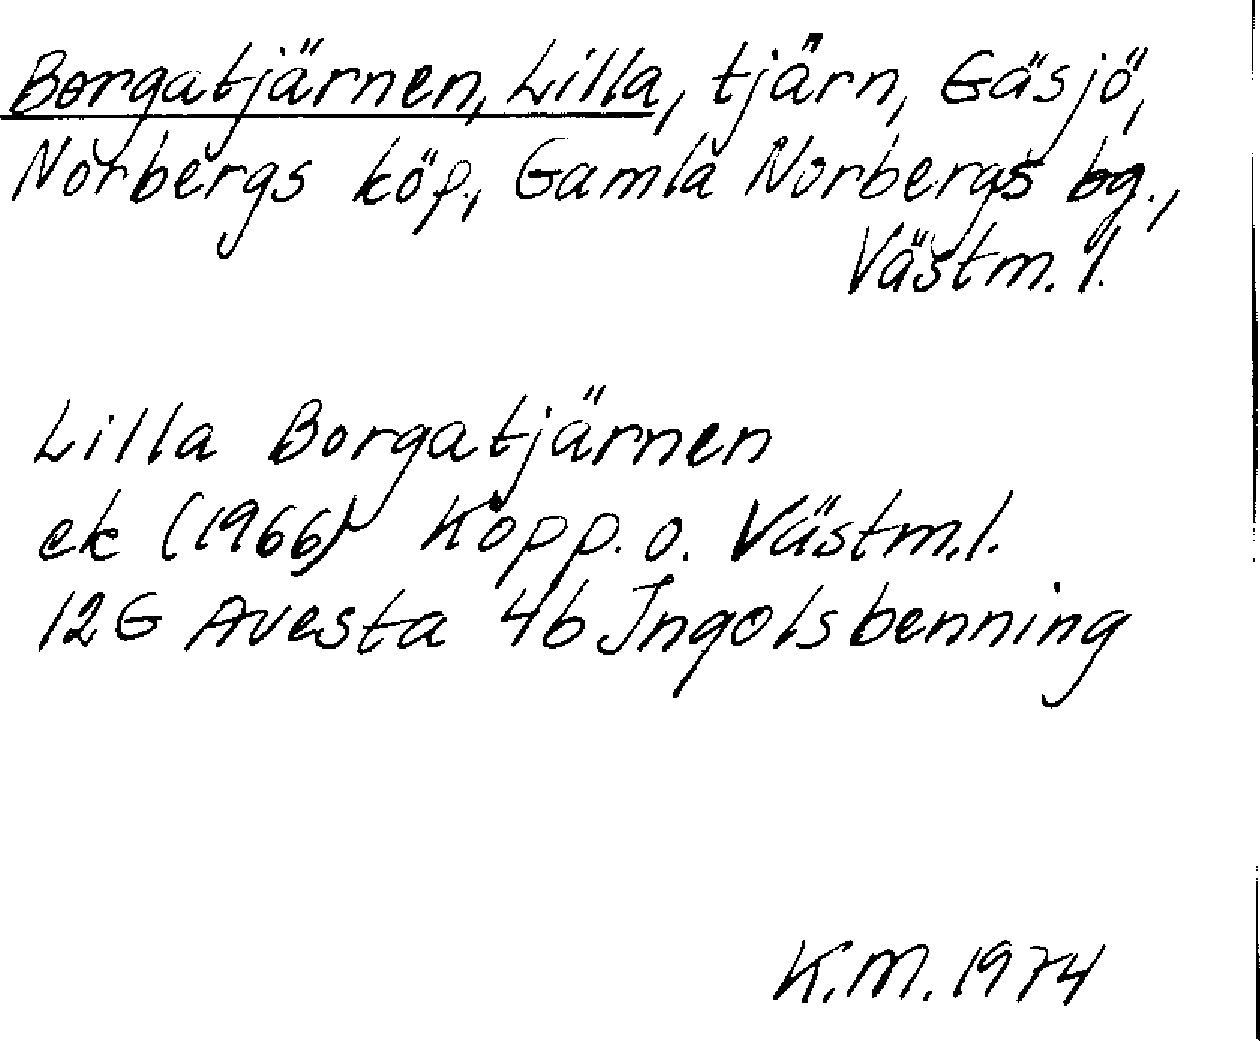 Borgatjärnen, Lilla, tjärn, Gäsjö,
Norbergs köp., Gamla Norbergs bg.,
Västm. l.
Lilla Borgatjärnen
ek (1966) Kopp. o. Västm.l.
12G Avesta 4b Ingolsbenning
K.M. 1974